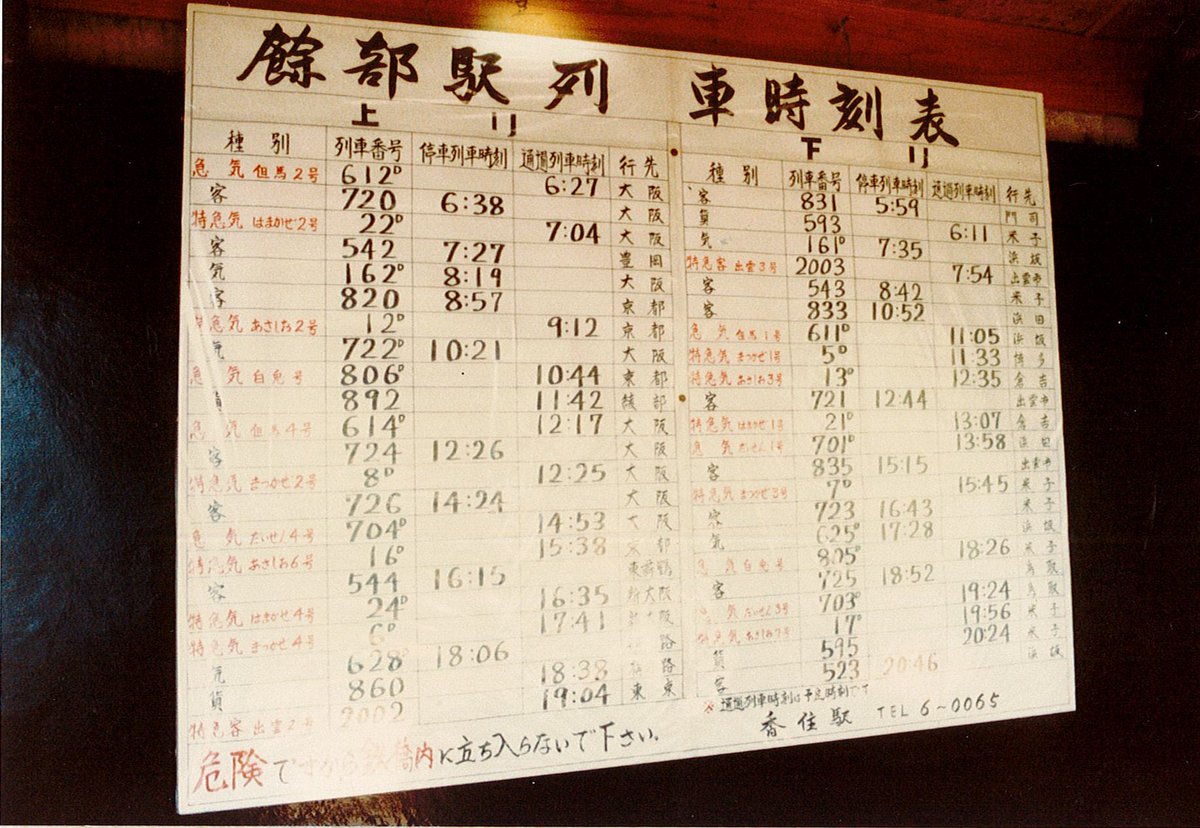 餘部駅列車時刻表
上り
種別 列車番号 停車列車時刻 通過列車時刻 行先
急 気 但馬2号 612D 6:27 大阪
客 720 6:38 大阪
特急気 はまかぜ2号 22D 7:04 大阪
客 542 7:27 豊岡
気 162D 8:19 大阪
客 820 8:57 京都
特急気 あさしお2号 12D 9:12 京都
気 722D 10:21 大阪
急 気 白兎号 806D 10:44 京都
貨 892 11:42 綾部
急 気 但馬4号 614D 12:17 大阪
客 724 12:26 大阪
特急気 まつかぜ2号 8D 12:25 大阪
客 726 14:24 大阪
急 気 だいせん4号 704D 14:53 大阪
特急気 あさしお6号 16D 15:38 京都
客 544 16:15 東舞鶴
特急気 はまかぜ4号 24D 16:35 新大阪
特急気 まつかぜ4号 6D 17:41 新大阪
気 628D 18:06 路
貨 860 18:38 路
特急客 出雲2号 2002 19:04 東京
下り
種別 列車番号 停車列車時刻 通過列車時刻 行先
客 831 5:59 門司
貨 593 6:11 米子
気 161D 7:35 浜坂
特急客 出雲3号 2003 7:54 出雲市
客 543 8:42 米子
客 833 10:52 浜田
急 気 但馬1号 611D 11:05 浜坂
特急気 まつかぜ1号 5D 11:33 博多
特急気 あさしお3号 13D 12:35 倉吉
客 721 12:44 出雲市
特急気 はまかぜ1号 21D 13:07 倉吉
急 気 だいせん1号 701D 13:58 浜田
客 835 15:15 出雲市
特急気 まつかぜ3号 7D 15:45 米子
客 723 16:43 米子
気 625D 17:28 浜坂
急 気 白兎号 805D 18:26 米子
客 725 18:52 鳥取
急 気 だいせん3号 703D 19:24 鳥取
特急気 あさしお7号 17D 19:56 米子
貨 595 20:24 米子
客 523 20:46 浜坂
※通過列車時刻は予定時刻です
危険ですから鉄橋内に立ち入らないで下さい。
香住駅 TEL 6~0065